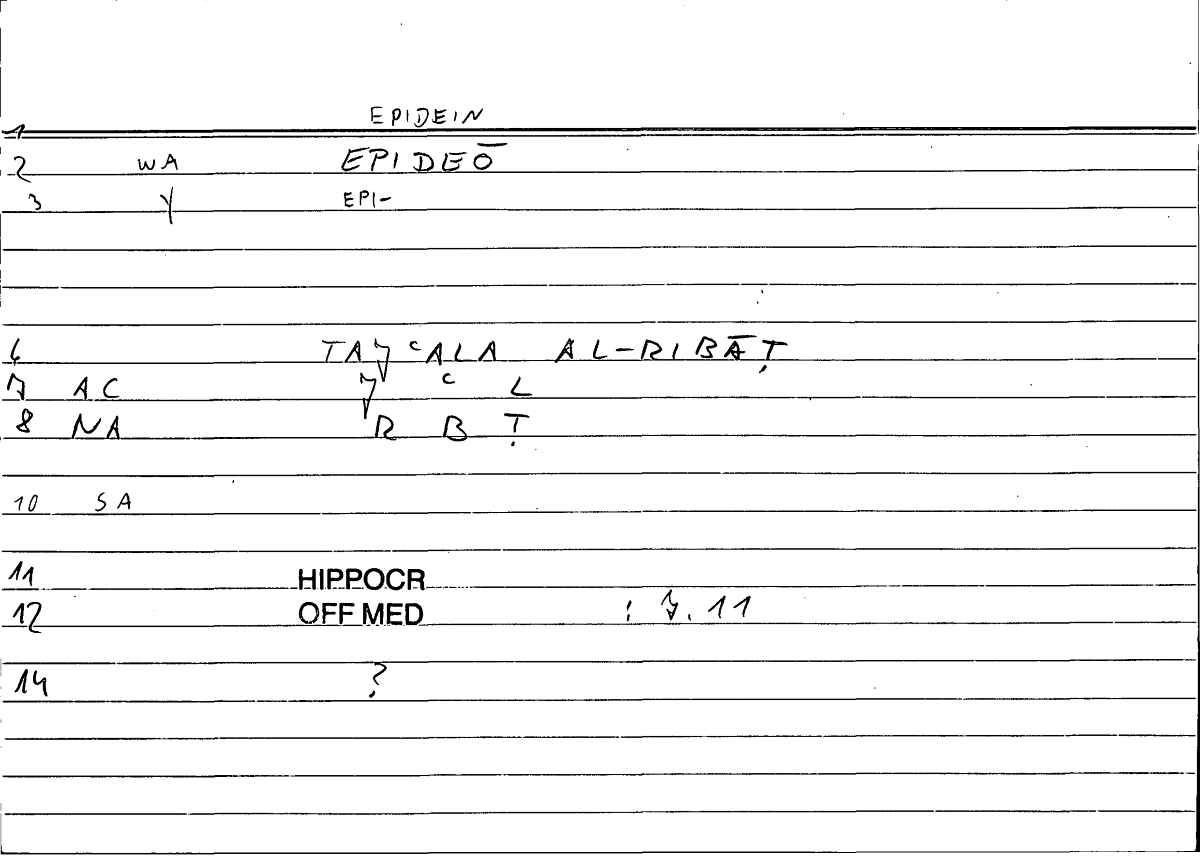 EPIDEIN
1
2 WA EPIDEŌ
3 Y EPI-
6 TAJʿALA AL-RIBĀṬ
7 AC J ʿ L
8 NA R B Ṭ
10 SA
11 HIPPOCR
12 OFF MED : 7.11
14 ?